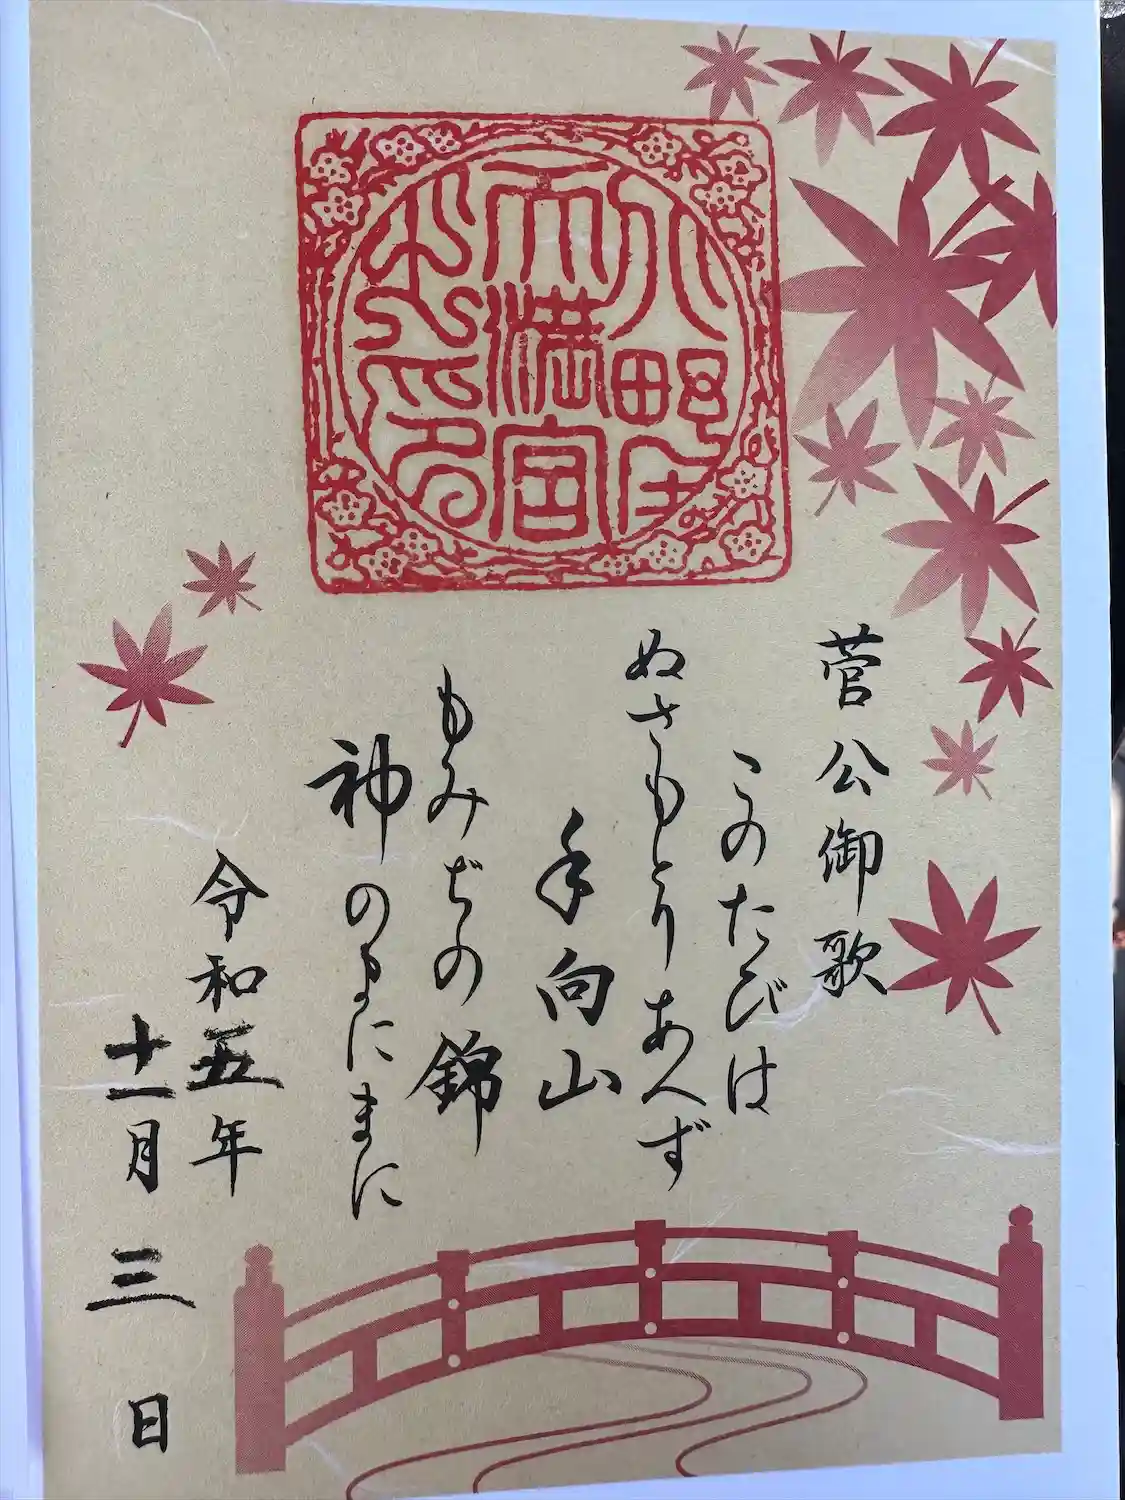 天満宮
之印
菅公御歌
このたびは
ぬさもとりあへず
手向山
もみぢの錦
神のまにまに
令和五年
十一月三日